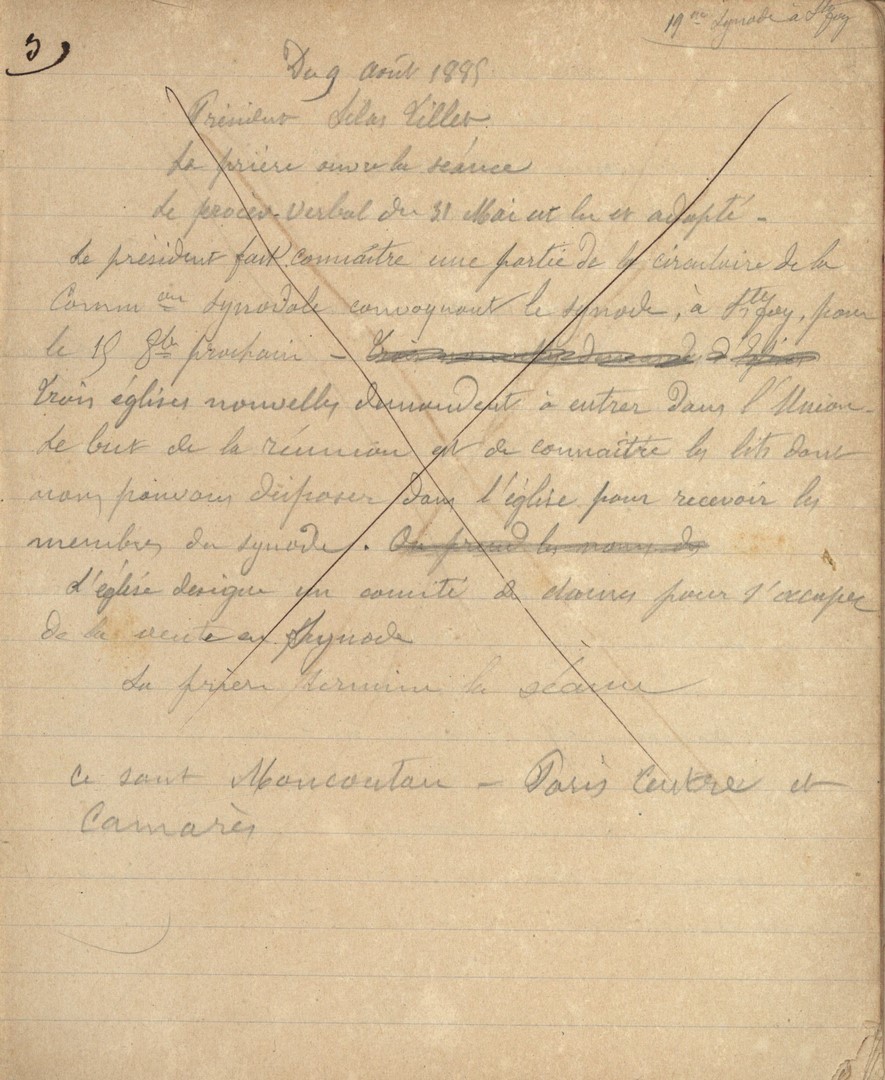 19me Synode à Ste foy
3)
Du 9 août 1885
Président Silas Tillet
La prière ouvre la séance
Le procès-verbal du 31 Mai est lu et adopté -
Le président fait connaître une partie de la circulaire de la
Commion synodale convoquant le synode, à Ste foy, pour
le 15 8bre prochain - Trois nouvelles demande d'églises
Trois églises nouvelles demandent à entrer dans l'Union -
Le but de la réunion est de connaître les lits dont
nous pouvons disposer dans l'église pour recevoir les
membres du synode. On prend les noms des
L'église designe un comité de dames pour s'occuper
de la vente au Synode
La prière termine la séance
Ce sont Moncoutan - Paris Centre et
Camarès